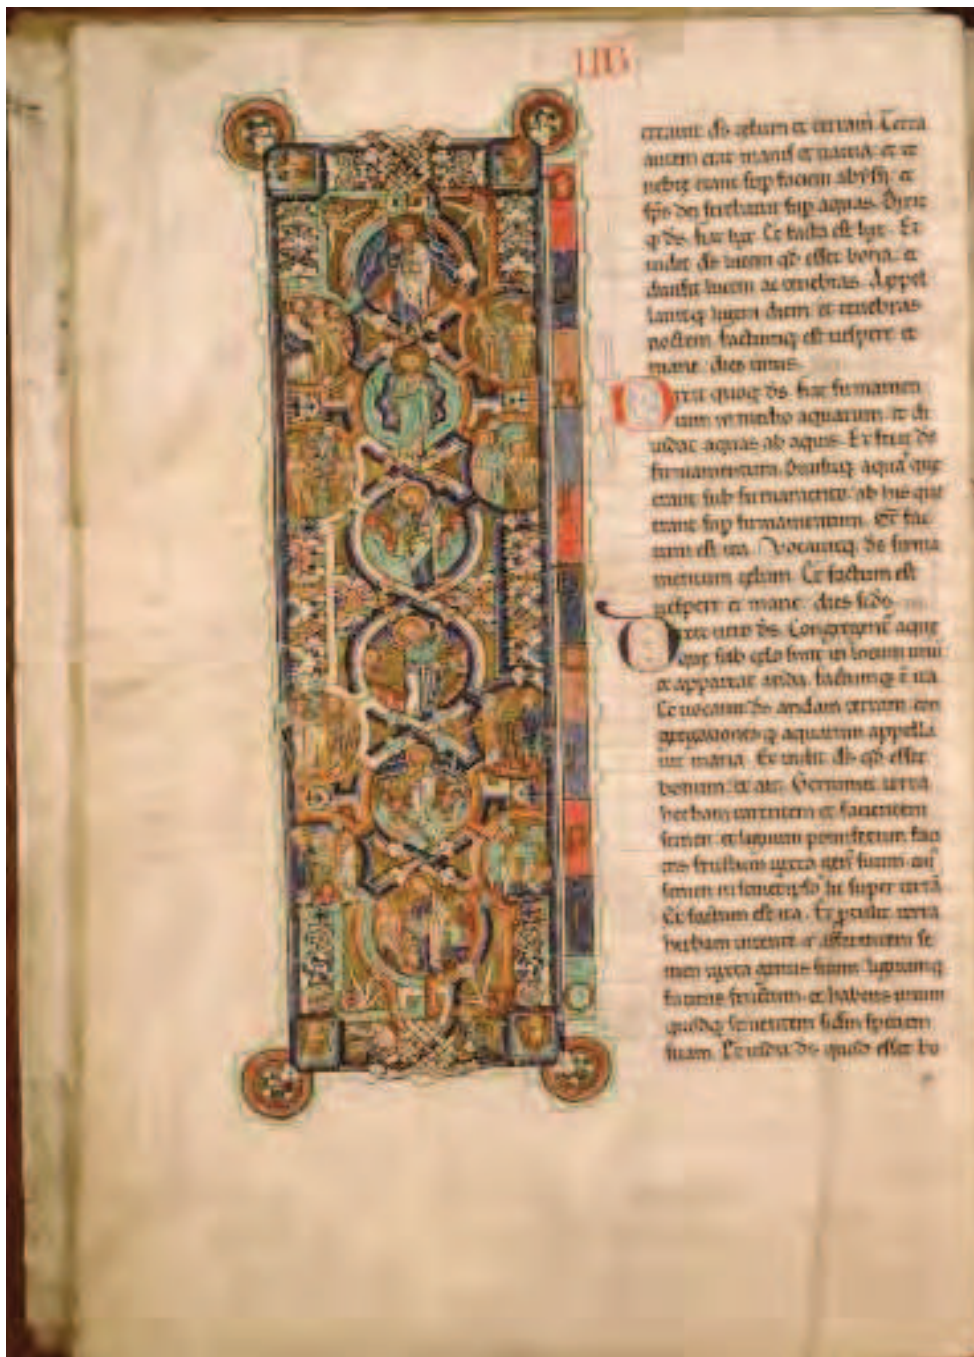 LIB
creauit ds celum et terram. Terra
autem erat inanis et uacua: et te
nebre erant sup faciem abyssi: et
sps dei ferebatur sup aquas. Dixit
q ds. fiat lux. Et facta est lux. Et
uidit ds lucem qd esset bona: et
diuisit lucem ac tenebras. Appel
lauitq lucem diem: et tenebras
noctem. factumq est uespere et
mane: dies unus.
Dixit quoq ds. fiat firmamen
tum in medio aquarum: et di
uidat aquas ab aquis. Et fecit ds
firmamentum. Diuisitq aquas que
erant sub firmamento: ab his que
erant sup firmamentum. Et fac
tum est ita. Vocauitq ds firma
mentum celum. Et factum est
uespere et mane: dies scds.
Dixit uero ds. Congregent aque
que sub celo sunt in locum unu:
et appareat arida. factumq e ita.
Et uocauit ds aridam terram: con
gregationesq aquarum appella
uit maria. Et uidit ds qd esset
bonum: et ait. Germinet terra
herbam uirentem et facientem
semen: et lignum pomiferum faci
ens fructum iuxta gen suum: cui
semen in semetipso sit super terra.
Et factum est ita. Et protulit terra
herbam uirentem et afferentem se
men iuxta genus suum: lignumq
faciens fructum: et habens unum
quodq sementem scdm speciem
suam. Et uidit ds quod esset bo